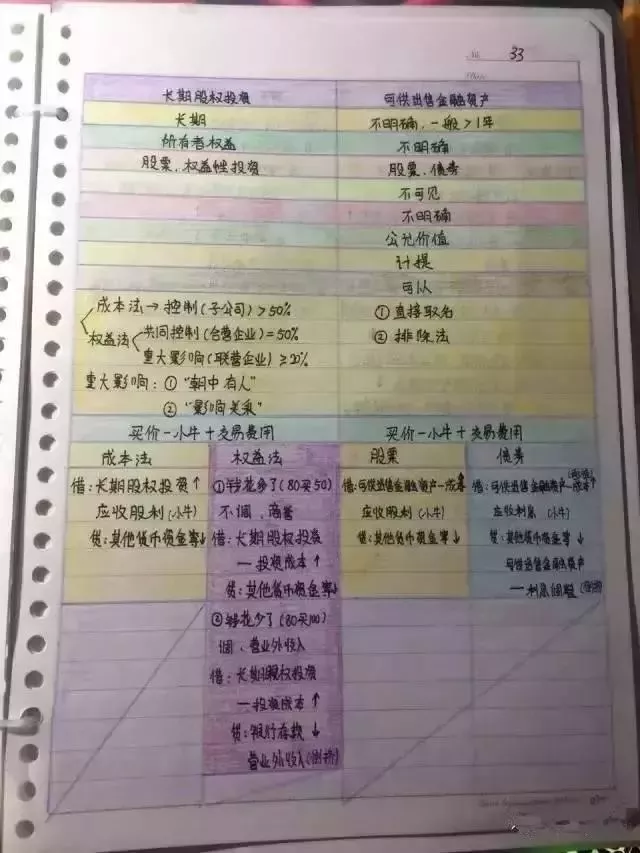 No 33
长期股权投资 可供出售金融资产
长期 不明确，一般>1年
所有者权益 不明确
股票、权益性投资 股票、债券
不可见
不明确
公允价值
计提
可以
成本法→控制(子公司)>50% ①直接取名
权益法 共同控制(合营企业)=50% ②排除法
重大影响(联营企业)≥20%
重大影响：①"朝中有人"
②"影响关系"
买价-小牛+交易费用 买价-小牛+交易费用
成本法
借：长期股权投资↑
应收股利(小牛)
贷：其他货币资金等↓
权益法
①钱花多了(80买50)
不调，商誉
借：长期股权投资
—投资成本↑
贷：其他货币资金等↓
②钱花少了(80买100)
调，营业外收入
借：长期股权投资
—投资成本↑
贷：银行存款↓
营业外收入(倒挤)
股票
借：可供出售金融资产—成本↑
应收股利(小牛)
贷：其他货币资金等↓
债券
借：可供出售金融资产—成本↑
应收利息(小牛)
贷：其他货币资金等↓
可供出售金融资产
—利息调整(倒挤)